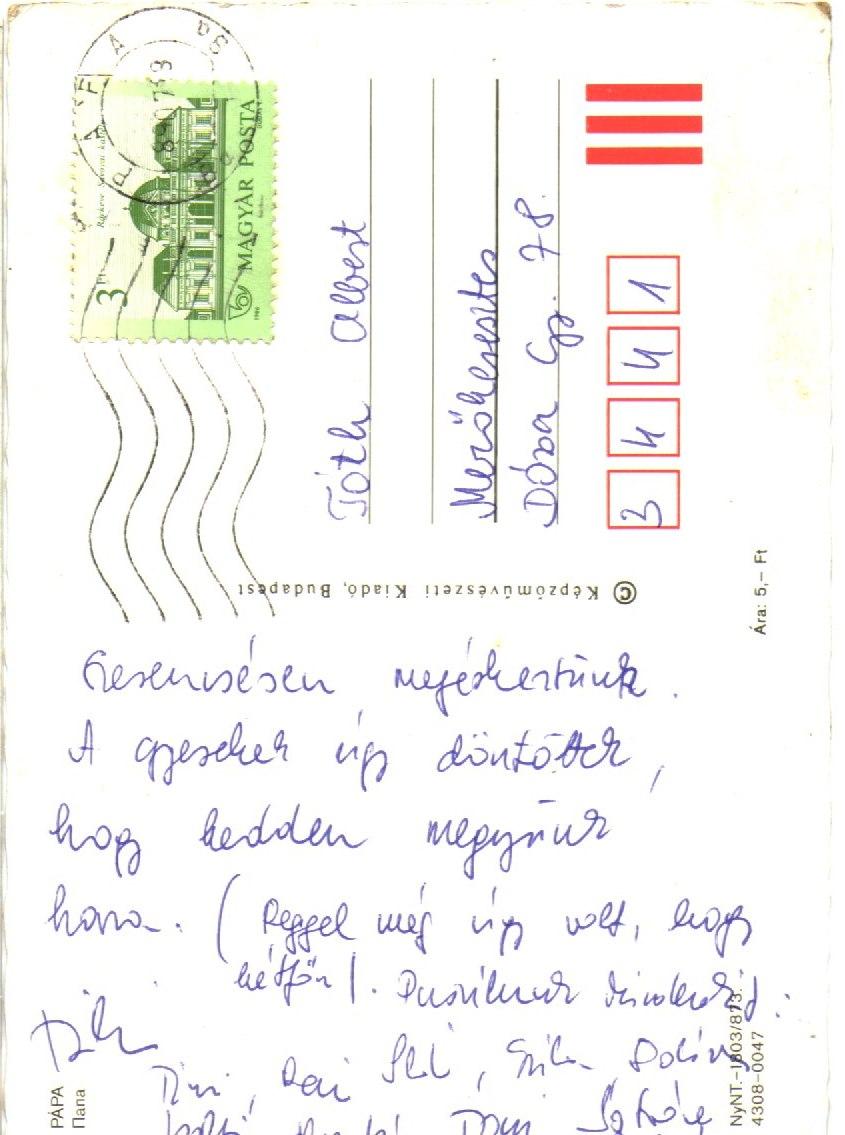 PÁPA
MAGYAR POSTA
3 Ft
1986
Tóth Albert
Mezőkeresztes
Dózsa Gy. 78.
3441
© Képzőművészeti Kiadó, Budapest
Ára: 5,– Ft
Szerencsésen megérkeztünk.
A gyerekek úgy döntöttek,
hogy kedden megyünk
haza. (Reggel még úgy volt, hogy
hétfőn).
Timi
PÁPA
Папа
NyNT.–1803/873.
4308–0047